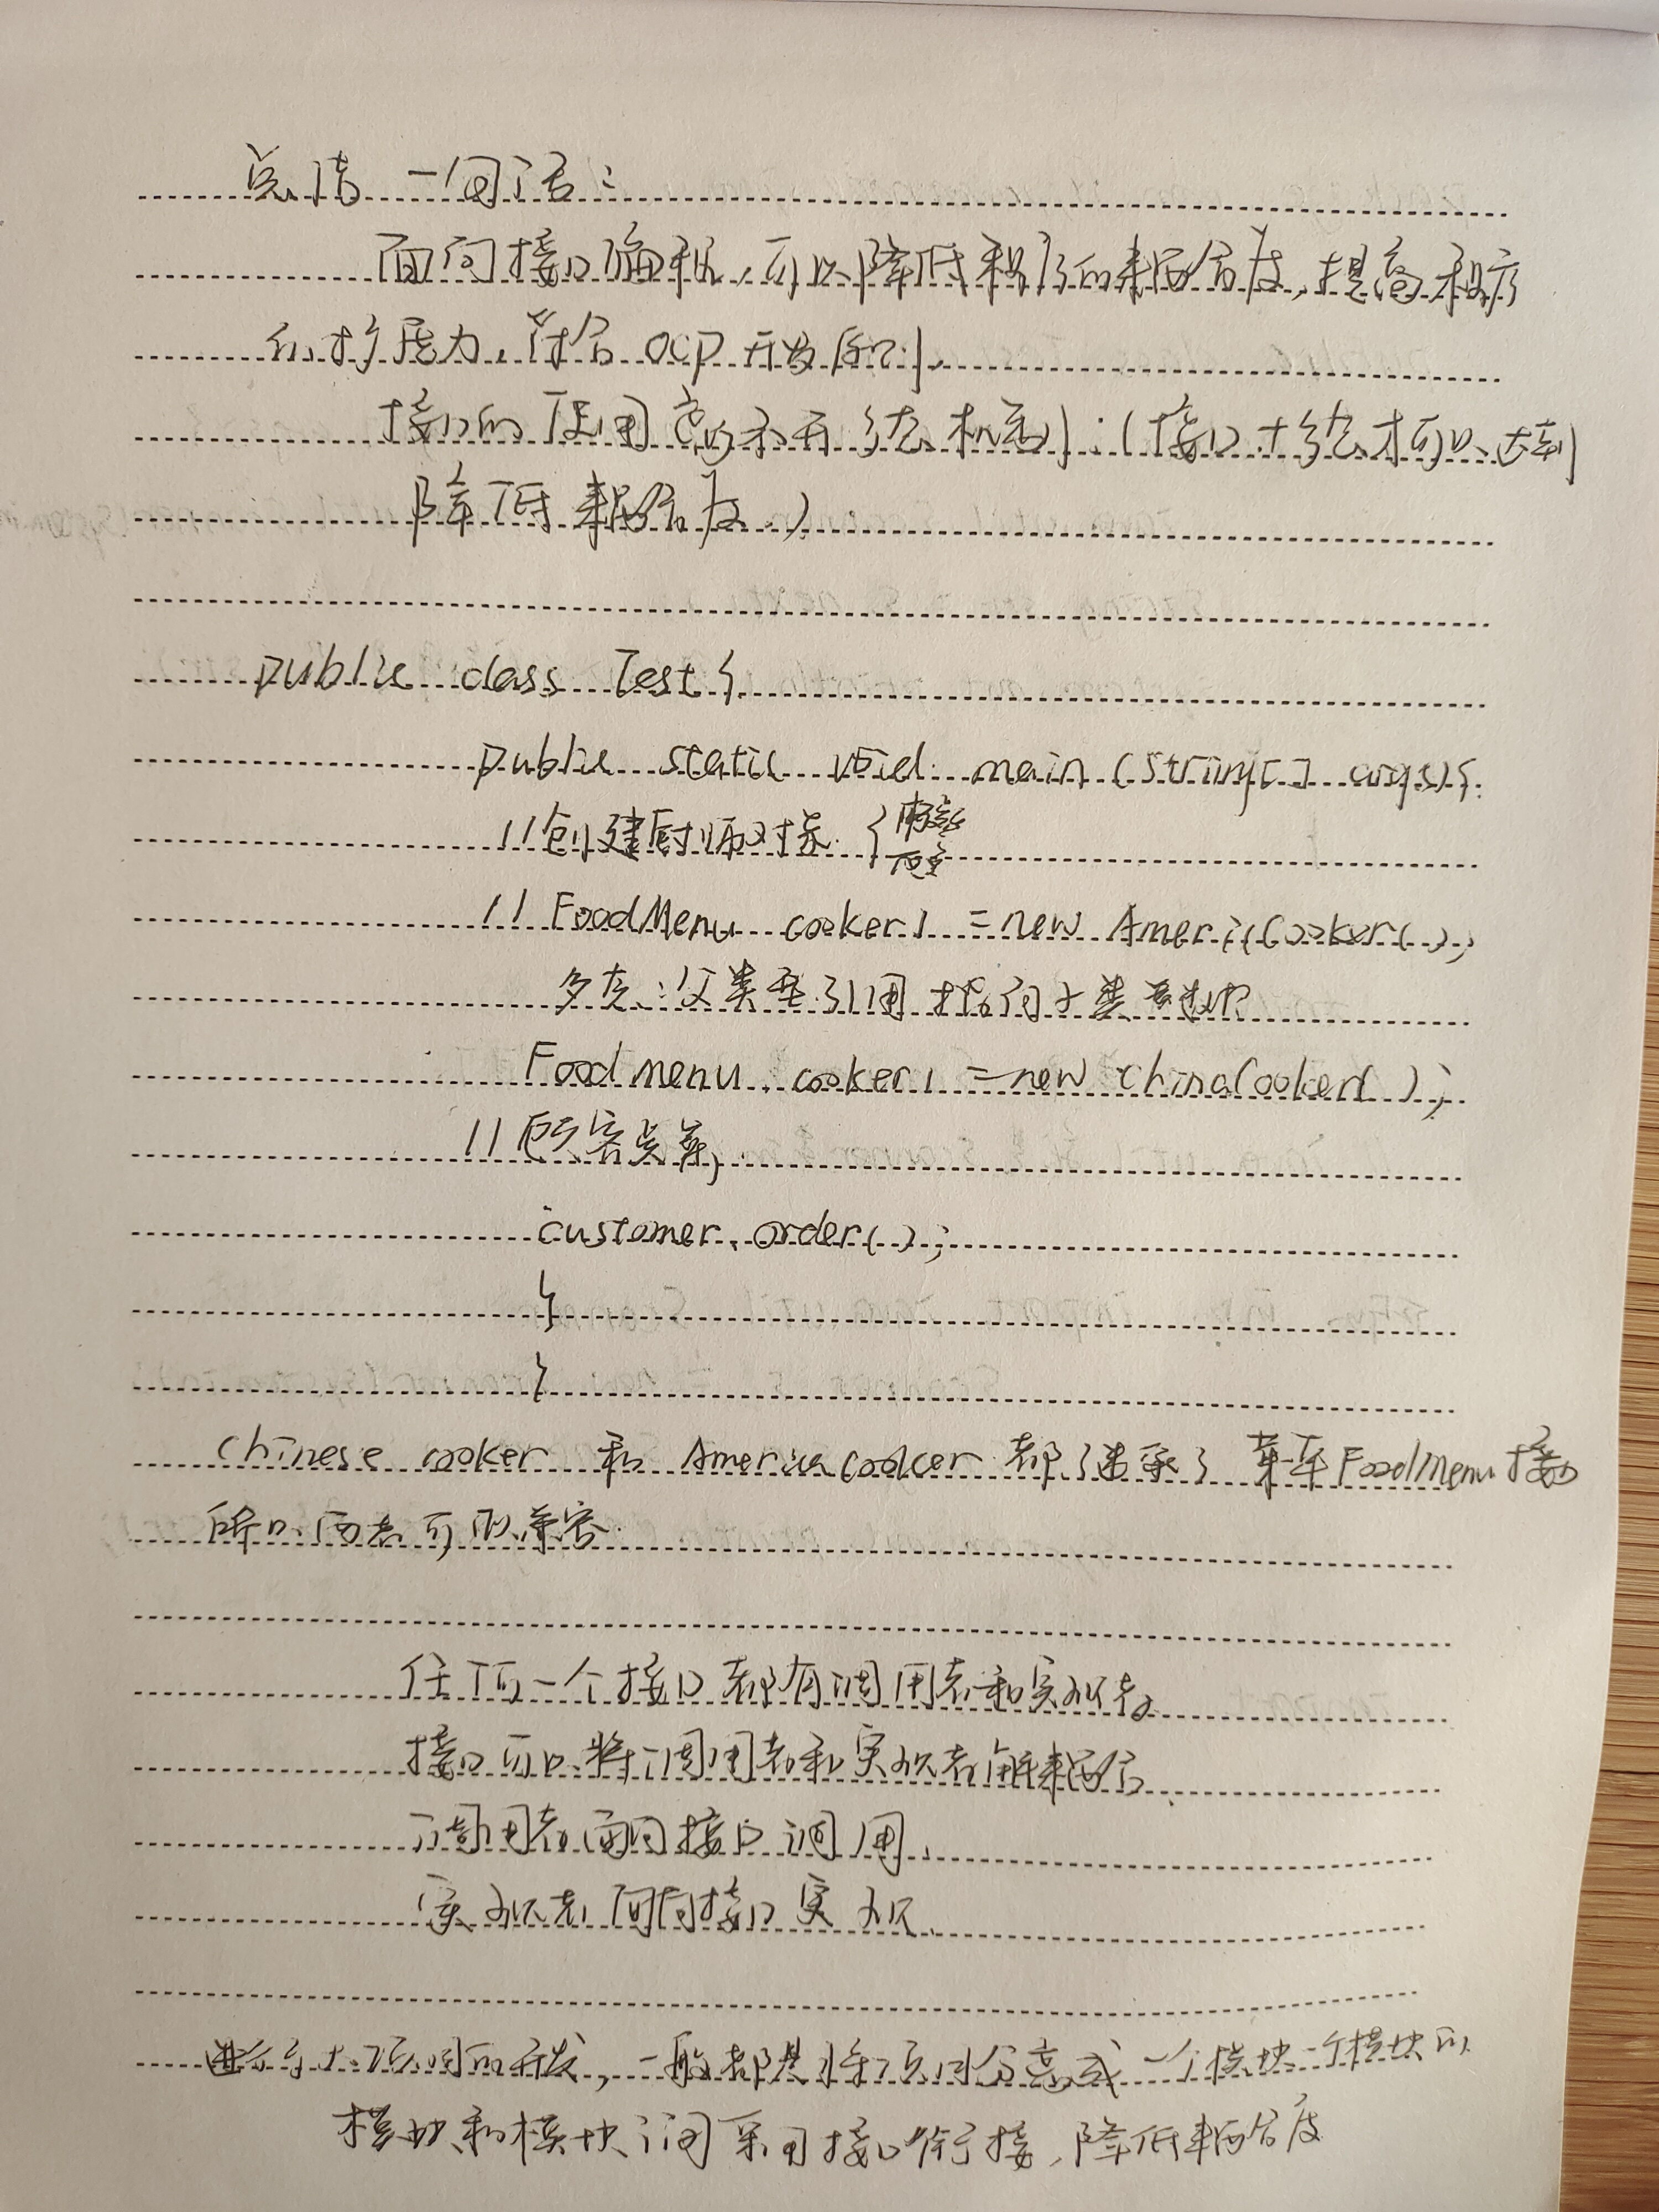 总结一句话:
面向接口编程,可以降低程序的耦合度,提高程序
的扩展力,符合OCP开发原则.
接口的使用离不开多态机制:(接口+多态才可以达到
降低耦合度.)
public class Test{
public static void main(String[] args){
//创建厨师对象 {
// FoodMenu cooker1 = new AmericCooker();
多态:父类型引用指向子类型
Foodmenu cooker1 = new chinaCooker();
//顾客
customer.order();
}
}
Chinese cooker 和 America cooker 都继承了菜单FoodMenu接口
所以两者可以兼容.
任何一个接口都有调用者和实现者.
接口可以将调用者和实现者解耦合.
调用者面向接口调用.
实现者面向接口实现.
进行大项目的开发,一般都是将项目分离成一个模块一个模块的
模块和模块间采用接口衔接,降低耦合度